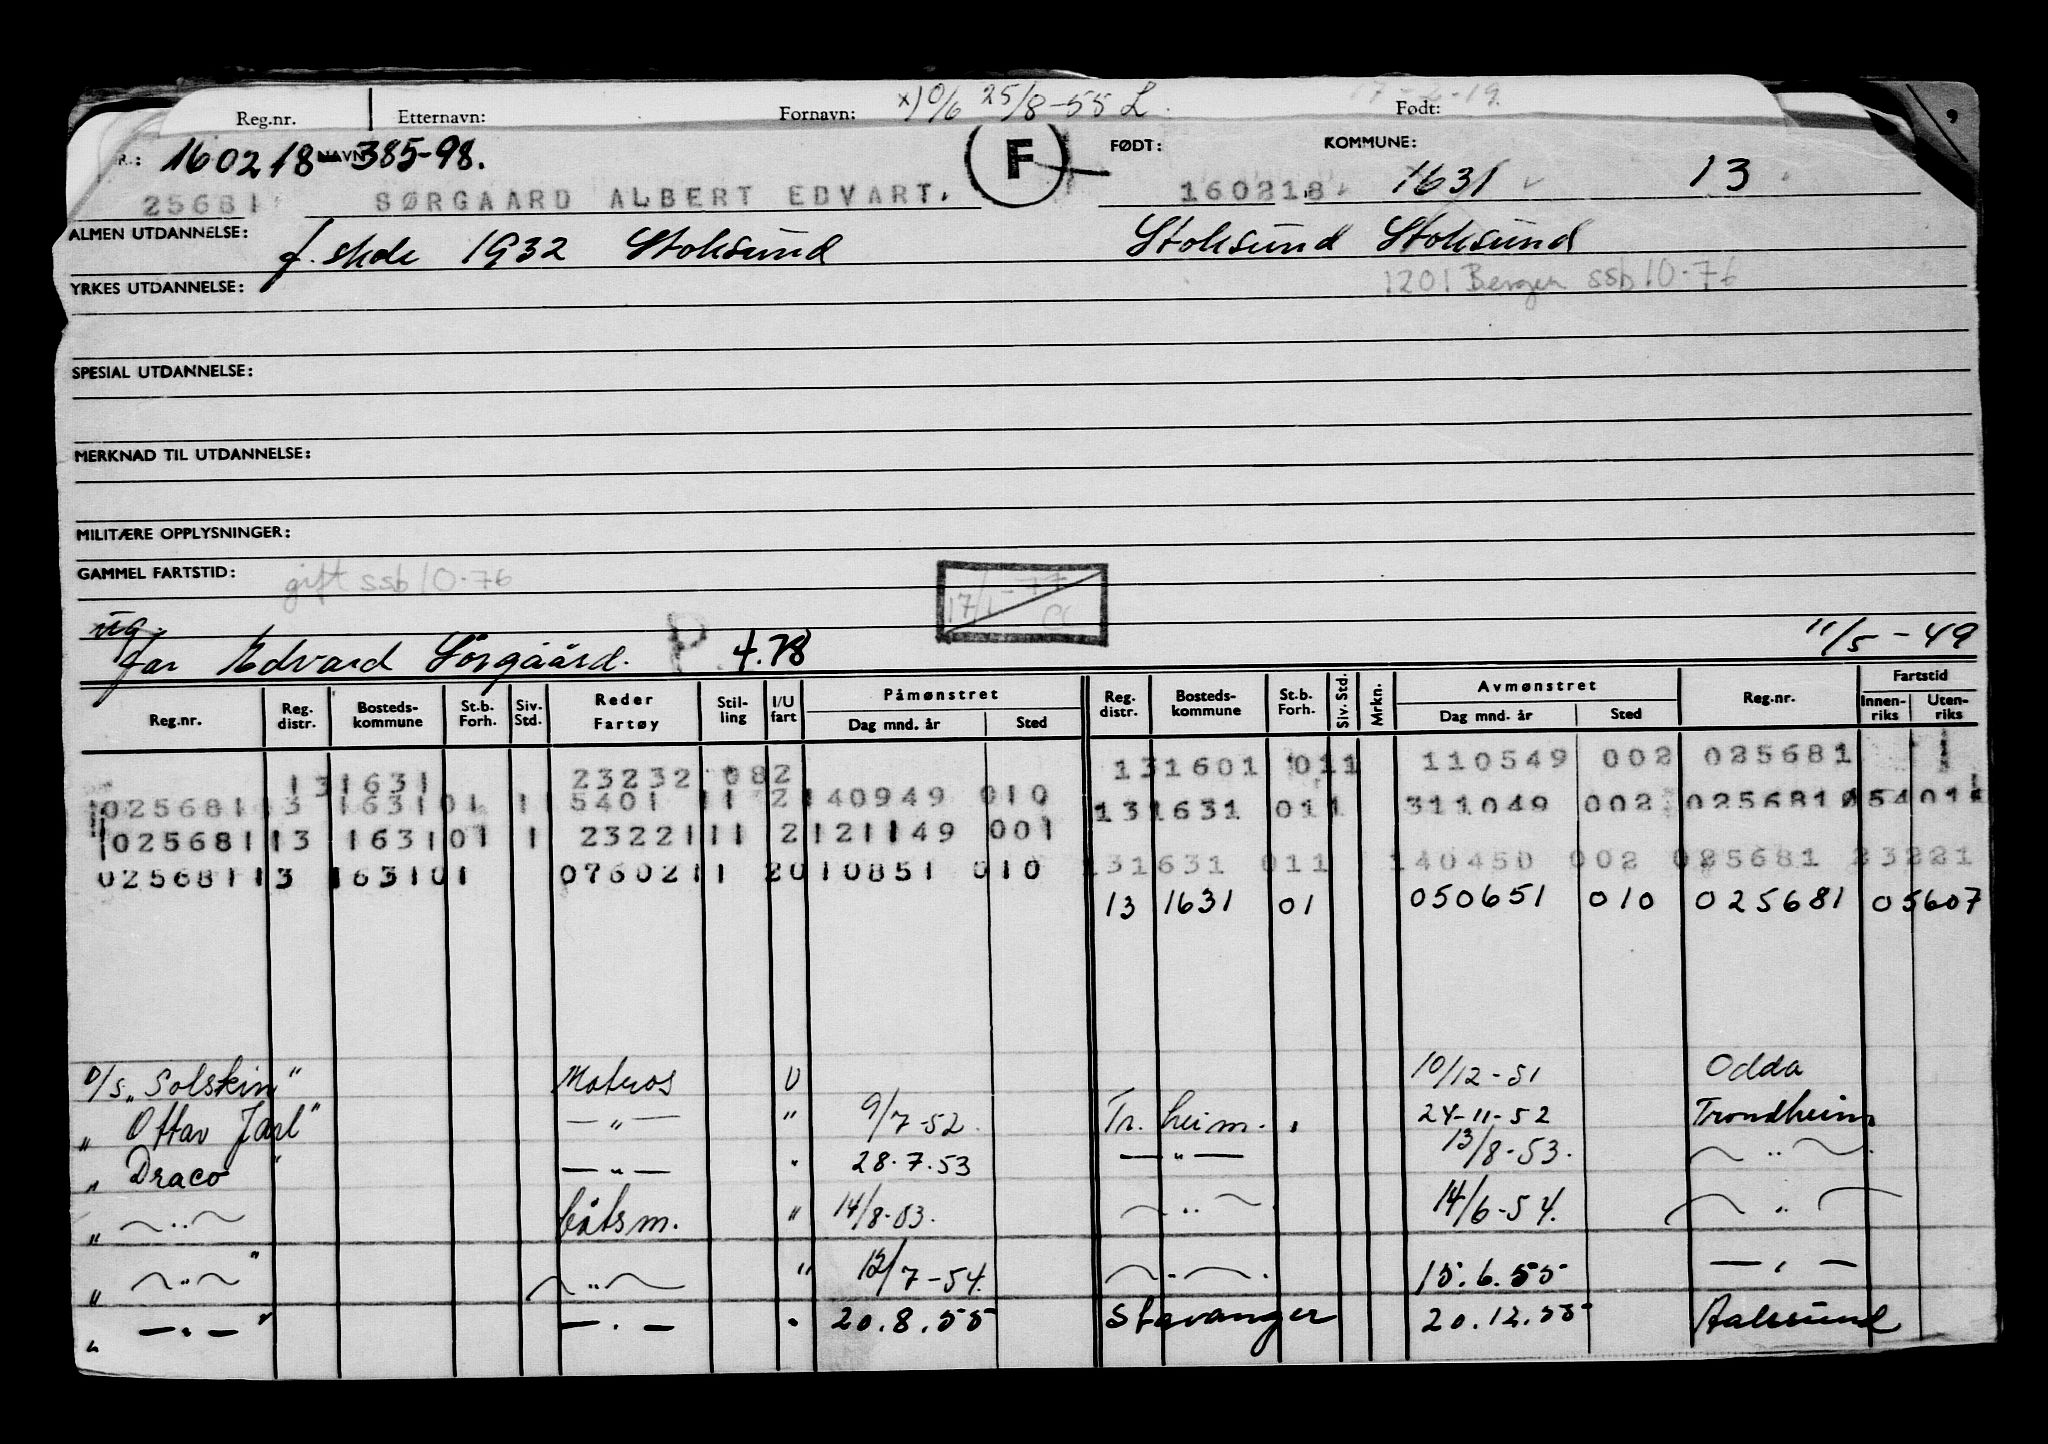 x) O/6 25/8-55 L. 17-2-19.
Reg.nr. Etternavn: Fornavn: Født:
R.: 160218 NAVN 385-98. F FØDT: KOMMUNE:
25681 SØRGAARD ALBERT EDVART. 160218 1631 13
ALMEN UTDANNELSE: f. skole 1932 Stoksund Stoksund Stoksund
YRKES UTDANNELSE: 1201 Bergen ssb 10-76
SPESIAL UTDANNELSE:
MERKNAD TIL UTDANNELSE:
MILITÆRE OPPLYSNINGER:
GAMMEL FARTSTID: gift ssb 10-76 17/1-77
ug.
far Edvard Sörgåård. P 4.78 11/5-49
Reg.nr. Reg. distr. Bosteds- kommune St.b. Forh. Siv. Std. Reder Fartøy Stil- ling I/U fart Påmønstret Dag mnd. år Sted Reg. distr. Bosteds- kommune St.b. Forh. Siv. Std. Mrkn. Avmønstret Dag mnd. år Sted Reg.nr. Fartstid Innen- riks Uten- riks
131631 23232 082 131601 011 110549 002 025681
025681 13 1631 01 1 5401 11 2 140949 010 131631 011 311049 002 025681 05401
025681 13 1631 01 1 23221 11 2 121149 001 131631 011 140450 002 025681 23221
025681 13 1631 01 07602 11 2 010851 010
13 1631 01 050651 010 025681 05607
D/S "Solskin" Matros U 10/12-51 Odda
" Ottar Jarl" — " — " 9/7-52. Tr.heim. 24-11-52 Trondheim
" Draco " — " — " 28.7.53 — " — 13/8-53. — " —
" — " — båtsm. " 14/8-53. — " — 14/6-54. — " —
" — " — " — " — " 12/7-54. — " — 15.6.55 — " —
" — " — " — " — " 20.8.55 Stavanger 20.12.55 Aalesund